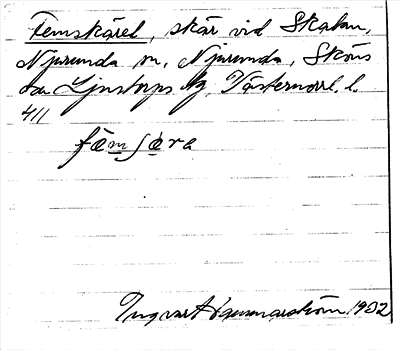 Femskäret, skär vid Skatan,
Njurunda sn, Njurunda, Sköns
o. Ljustorps tg Västernorrl. l.
411
fæmʃæra
Ingvar Hammarström 1902